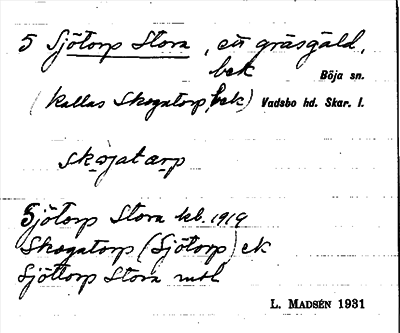 5 Sjötorp Stora, ett gräsgäld,
bek
Böja sn.
(kallas Skogatorp, bek) Vadsbo hd. Skar. l.
skojatarp
Sjötorp Stora kb. 1919
Skogatorp (Sjötorp) ek
Sjöttorp Stora mtl
L. MADSÉN 1931